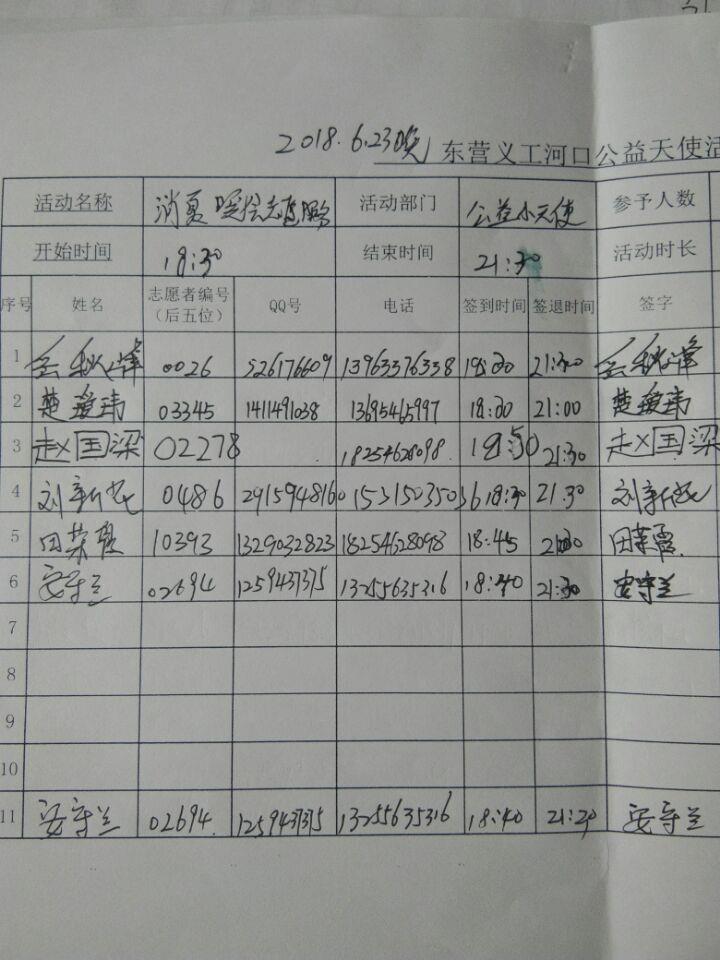 2018.6.23晚 东营义工河口公益天使活
活动名称 消夏 志愿服务 活动部门 公益小天使 参予人数
开始时间 18:30 结束时间 21:30 活动时长
序号 姓名 志愿者编号（后五位） QQ号 电话 签到时间 签退时间 签字
1 0026 526176609 13963376338 21:30
2 楚爱玮 03345 1411491038 13695465997 18:20 21:00 楚爱玮
3 赵国梁 02278 18254628098 18:50 21:30 赵国梁
4 刘新 0486 2915948160 15315035036 18:30 21:30 刘新
5 田荣霞 10393 1329032823 18254628098 18:45 田荣霞
6 安守兰 02694 1259437375 13255635316 18:40 21:30 安守兰
7
8
9
10
11 安守兰 02694 1259437375 13255635316 18:40 21:20 安守兰